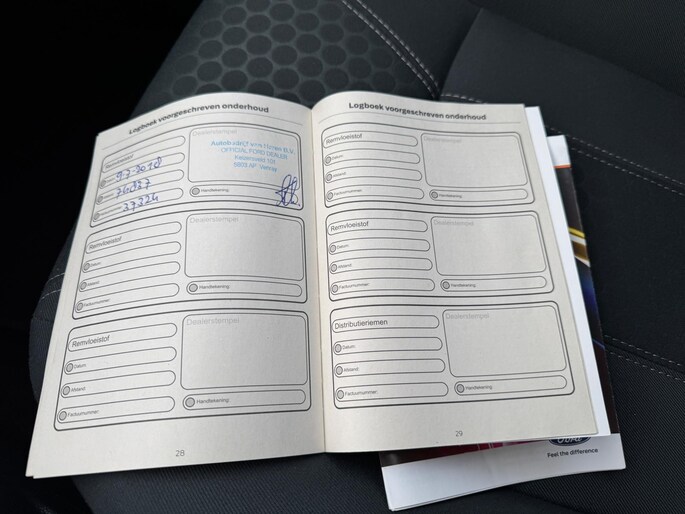 Logboek voorgeschreven onderhoud
Remvloeistof
Dealerstempel
OFFICIAL FORD DEALER
9-2-2018
Handtekening:
Remvloeistof
Dealerstempel
Datum:
Afstand:
Factuurnummer:
Handtekening:
Remvloeistof
Dealerstempel
Datum:
Afstand:
Factuurnummer:
Handtekening:
28
Logboek voorgeschreven onderhoud
Remvloeistof
Dealerstempel
Datum:
Afstand:
Factuurnummer:
Handtekening:
Remvloeistof
Dealerstempel
Datum:
Afstand:
Factuurnummer:
Handtekening:
Distributieriemen
Dealerstempel
Datum:
Afstand:
Factuurnummer:
Handtekening:
29
Ford
Feel the difference